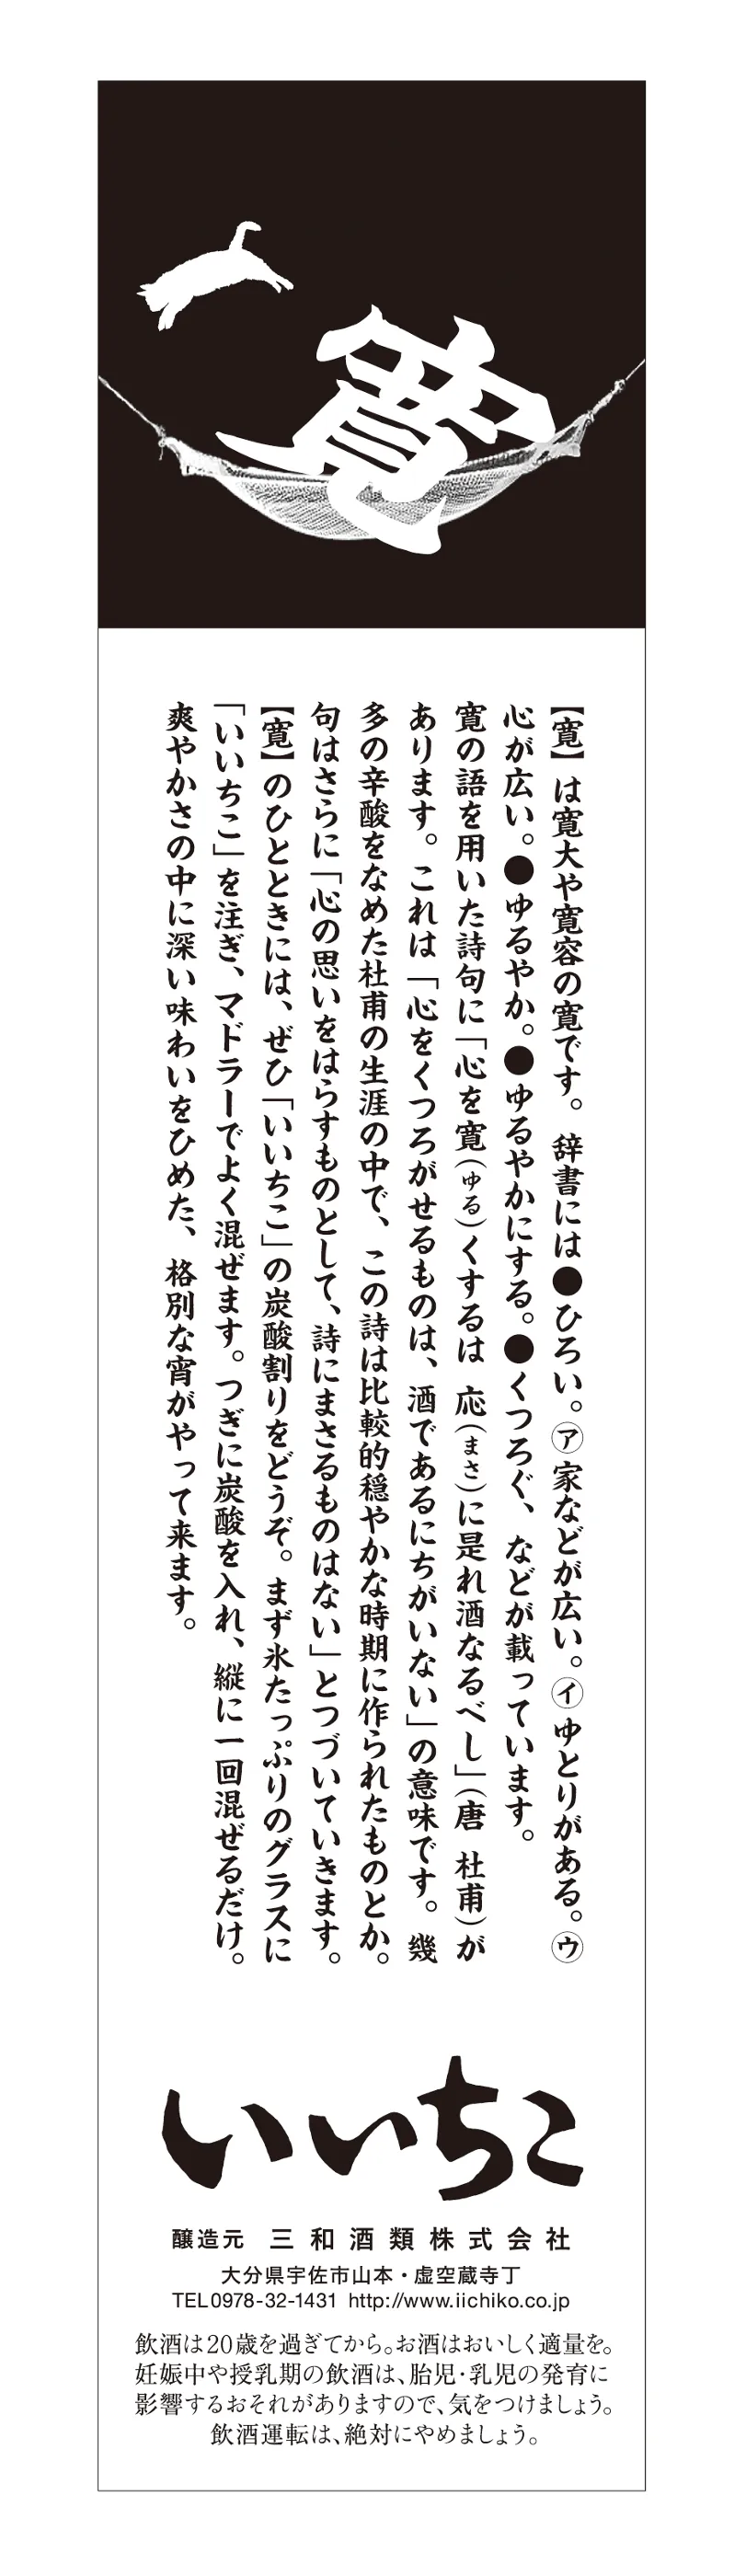 寛
【寛】は寛大や寛容の寛です。 辞書には●ひろい。㋐家などが広い。㋑ゆとりがある。㋒
心が広い。●ゆるやか。●ゆるやかにする。●くつろぐ、などが載っています。
寛の語を用いた詩句に「心を寛(ゆる)くするは 応(まさ)に是れ酒なるべし」(唐 杜甫)が
あります。これは「心をくつろがせるものは、酒であるにちがいない」の意味です。幾
多の辛酸をなめた杜甫の生涯の中で、この詩は比較的穏やかな時期に作られたものとか。
句はさらに「心の思いをはらすものとして、詩にまさるものはない」とつづいていきます。
【寛】のひとときには、ぜひ「いいちこ」の炭酸割りをどうぞ。まず氷たっぷりのグラスに
「いいちこ」を注ぎ、マドラーでよく混ぜます。つぎに炭酸を入れ、縦に一回混ぜるだけ。
爽やかさの中に深い味わいをひめた、格別な宵がやって来ます。
いいちこ
醸造元 三和酒類株式会社
大分県宇佐市山本・虚空蔵寺丁
TEL0978-32-1431 http://www.iichiko.co.jp
飲酒は20歳を過ぎてから。お酒はおいしく適量を。
妊娠中や授乳期の飲酒は、胎児・乳児の発育に
影響するおそれがありますので、気をつけましょう。
飲酒運転は、絶対にやめましょう。